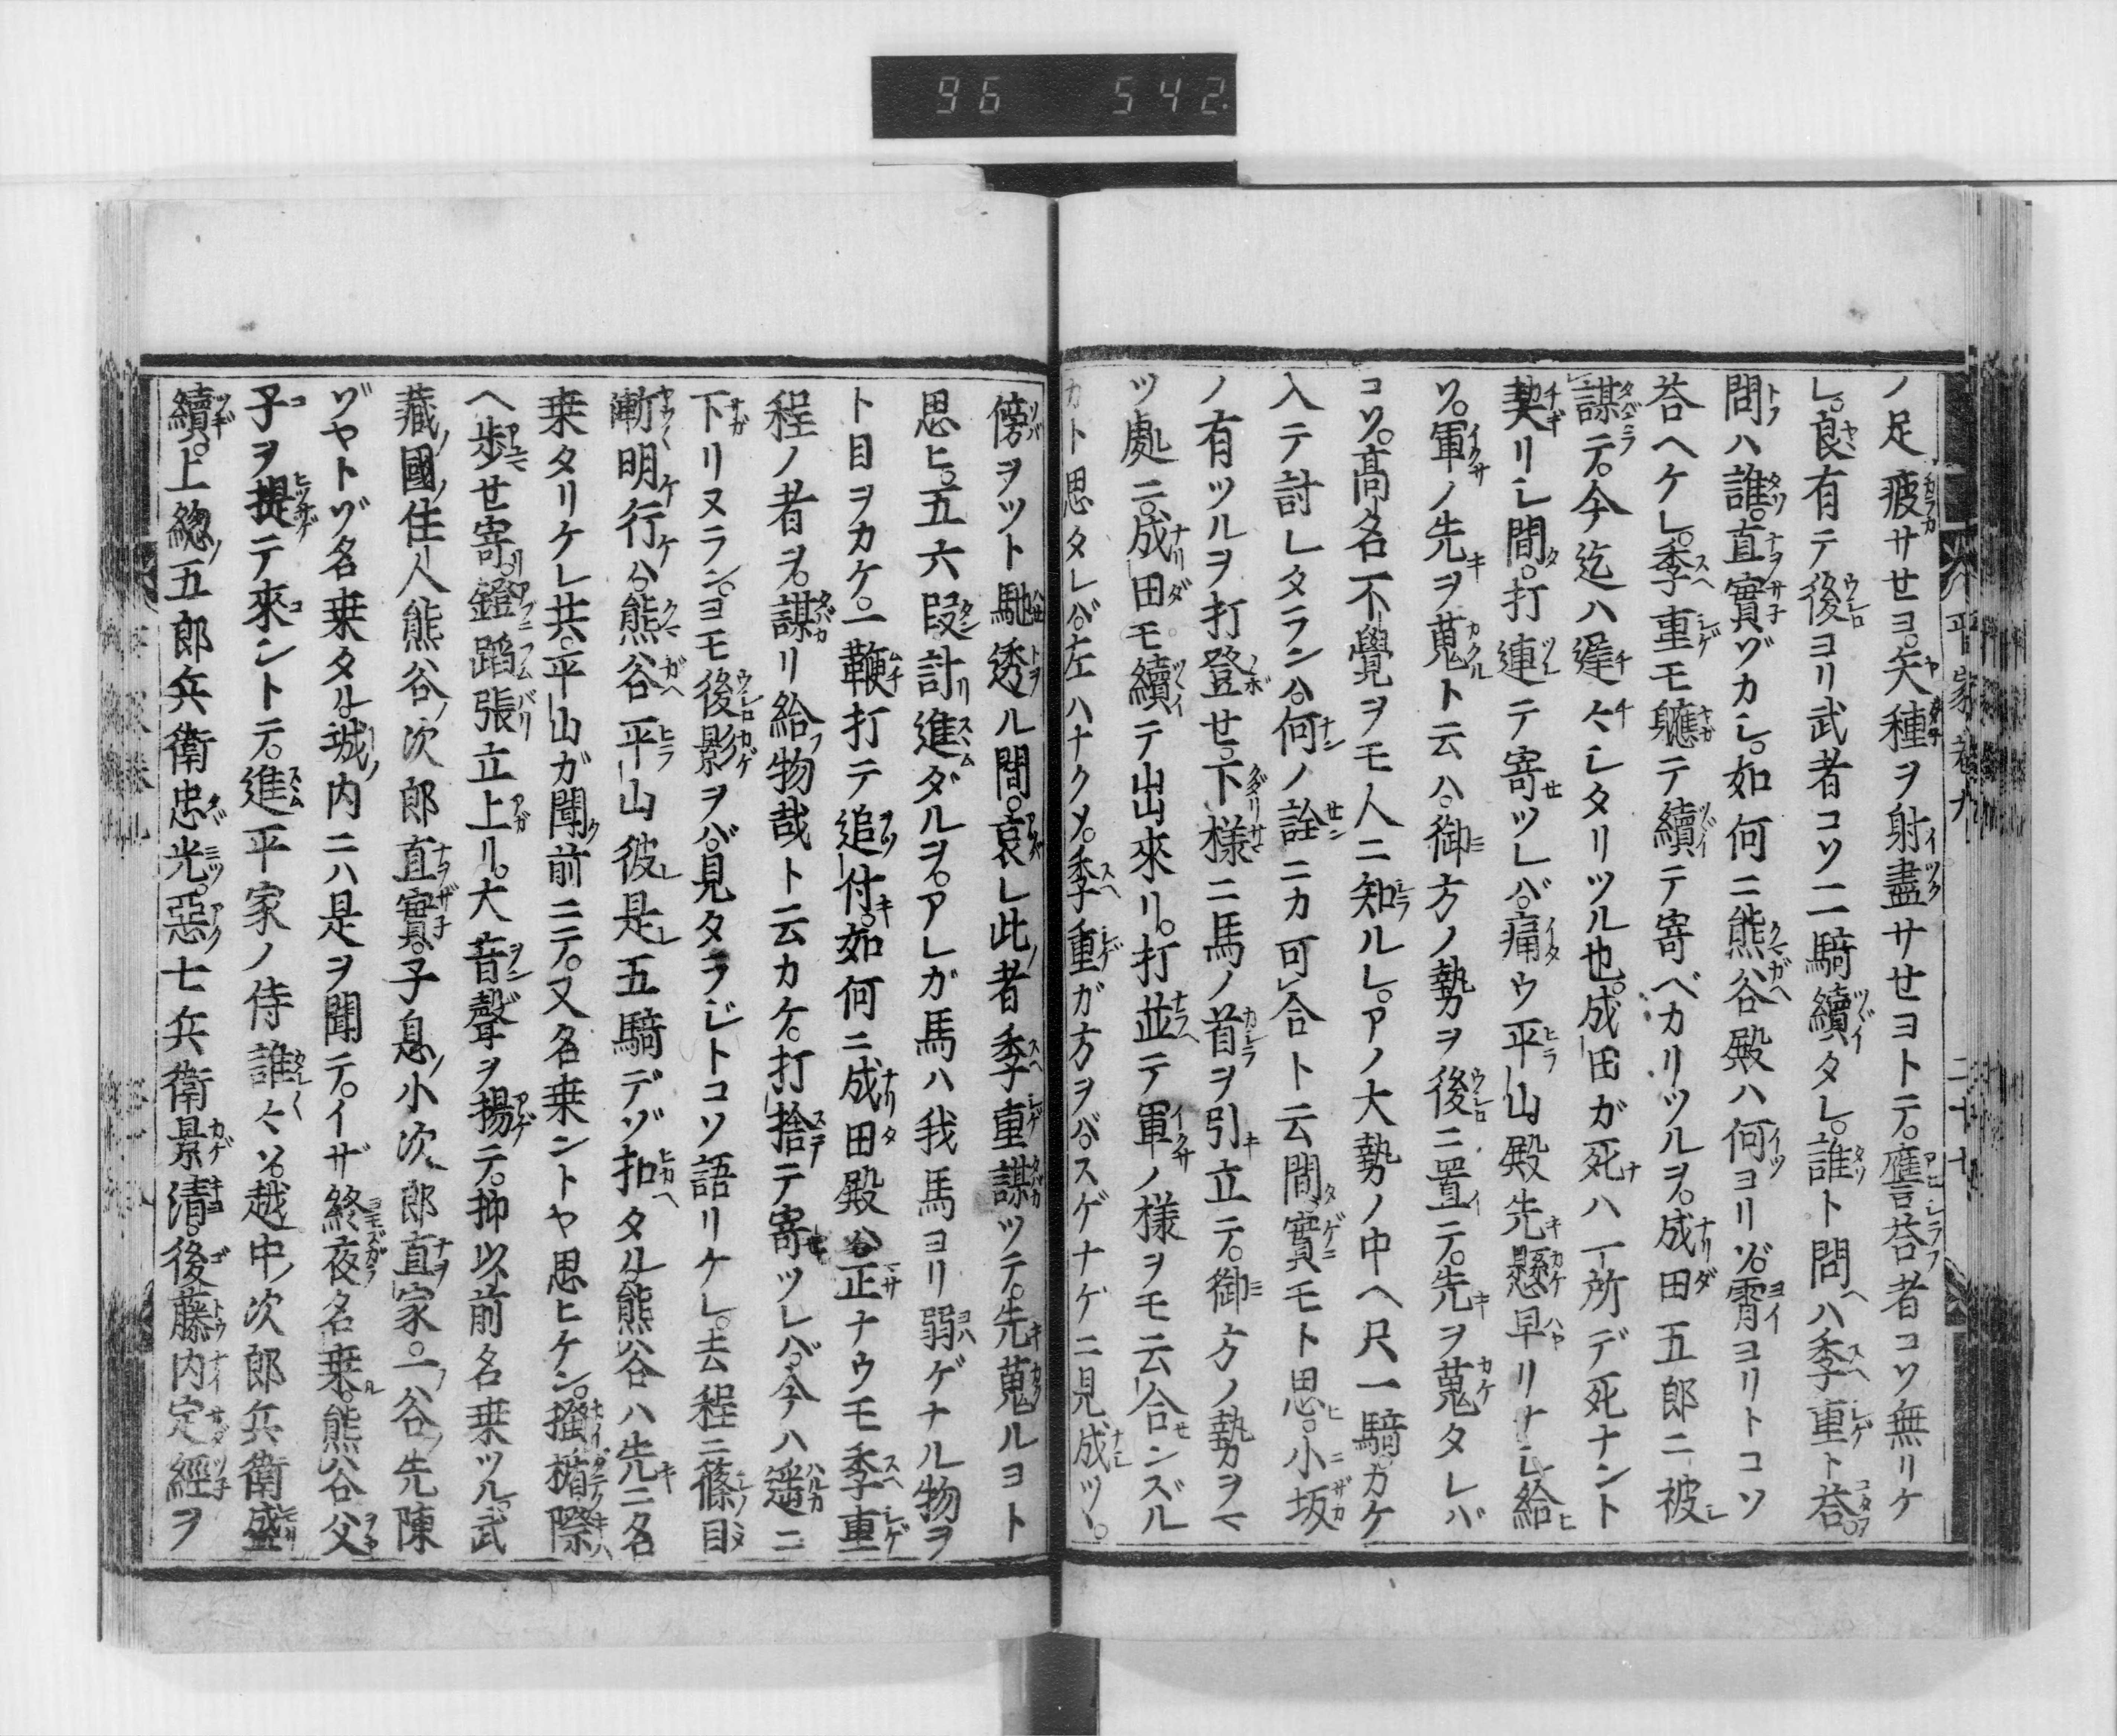 96 542.
ノ足疲サセヨ。矢種ヲ射盡サセヨトテ。應荅者コソ無リケ
レ。良有テ後ヨリ武者コソ二騎續タレ。誰ト問ヘハ季重ト荅。
問ハ誰。直實ゾカシ。如何ニ熊谷殿ハ何ヨリゾ。霄ヨリトコソ
荅ヘケレ。季重モ軈テ續テ寄ベカリツルヲ。成田五郎ニ被レ
謀テ。今迄ハ遲々シタリツル也。成田ガ死ハ一所デ死ナント
契リシ間。打連テ寄ツレバ。痛ウ平山殿先懸早リナシ給ヒ
ソ。軍ノ先ヲ蒐ト云ハ。御方ノ勢ヲ後ニ置テ。先ヲ蒐タレバ
コソ。高名不覺ヲモ人ニ知ルレ。アノ大勢ノ中ヘ只一騎カケ
入テ討レタランハ。何ノ詮ニカ可合ト云間。實モト思ヒ。小坂
ノ有ツルヲ打登セ。下様ニ馬ノ首ヲ引立テ。御方ノ勢ヲマ
ツ處ニ。成田モ續テ出來リ。打並テ軍ノ様ヲモ云合センズル
カト思タレバ。左ハナクメ。季重ガ方ヲバスゲナゲニ見成ツヽ。
平家 卷九 二十七
傍ヲツト馳透ル間。哀レ此者季重謀ツテ。先蒐ルヨト
思ヒ。五六段計リ進ダルヲ。アレガ馬ハ我馬ヨリ弱ゲナル物ヲ
ト目ヲカケ。一鞭打テ追付。如何ニ成田殿ハ正ナウモ季重
程ノ者ヲ。謀リ給フ物哉ト云カケ。打捨テ寄ツレバ。今ハ遥ニ
下リヌラン。ヨモ後影ヲバ見タラジトコソ語リケレ。去程ニ篠目
漸明行ハ。熊谷平山彼是五騎デゾ扣タル。熊谷ハ先ニ名
乗タリケレ共。平山ガ聞ク前ニテ。又名乗ントヤ思ヒケン。掻楯際
ヘ歩セ寄リ。鐙蹈張立上リ。大音聲ヲ揚テ。抑以前名乗ツル。武
藏國ノ住人熊谷ノ次郎直實。子息ノ小次郎直家。一ノ谷ノ先陳
ゾヤトゾ名乗タル。城ノ内ニハ是ヲ聞テ。イザ終夜名乗ル。熊谷父
子ヲ提テ來ントテ。進ム平家ノ侍誰々ゾ。越中ノ次郎兵衛盛
續。上総ノ五郎兵衛忠光。惡七兵衛景清。後藤内定經ヲ